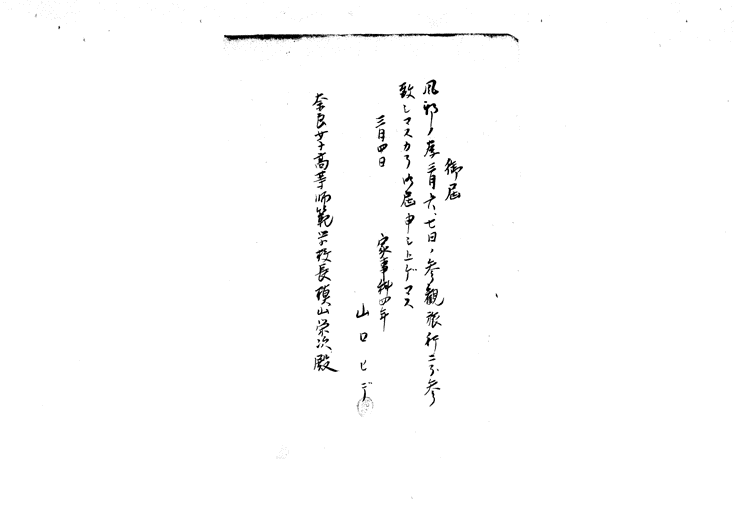 御届
風邪ノ為三月六、七日ノ参観旅行ニ不参
致シマスカラ御届申シ上ゲマス
三月四日
家事科四年
山口ヒデ
奈良女子高等師範学校長槇山栄次殿